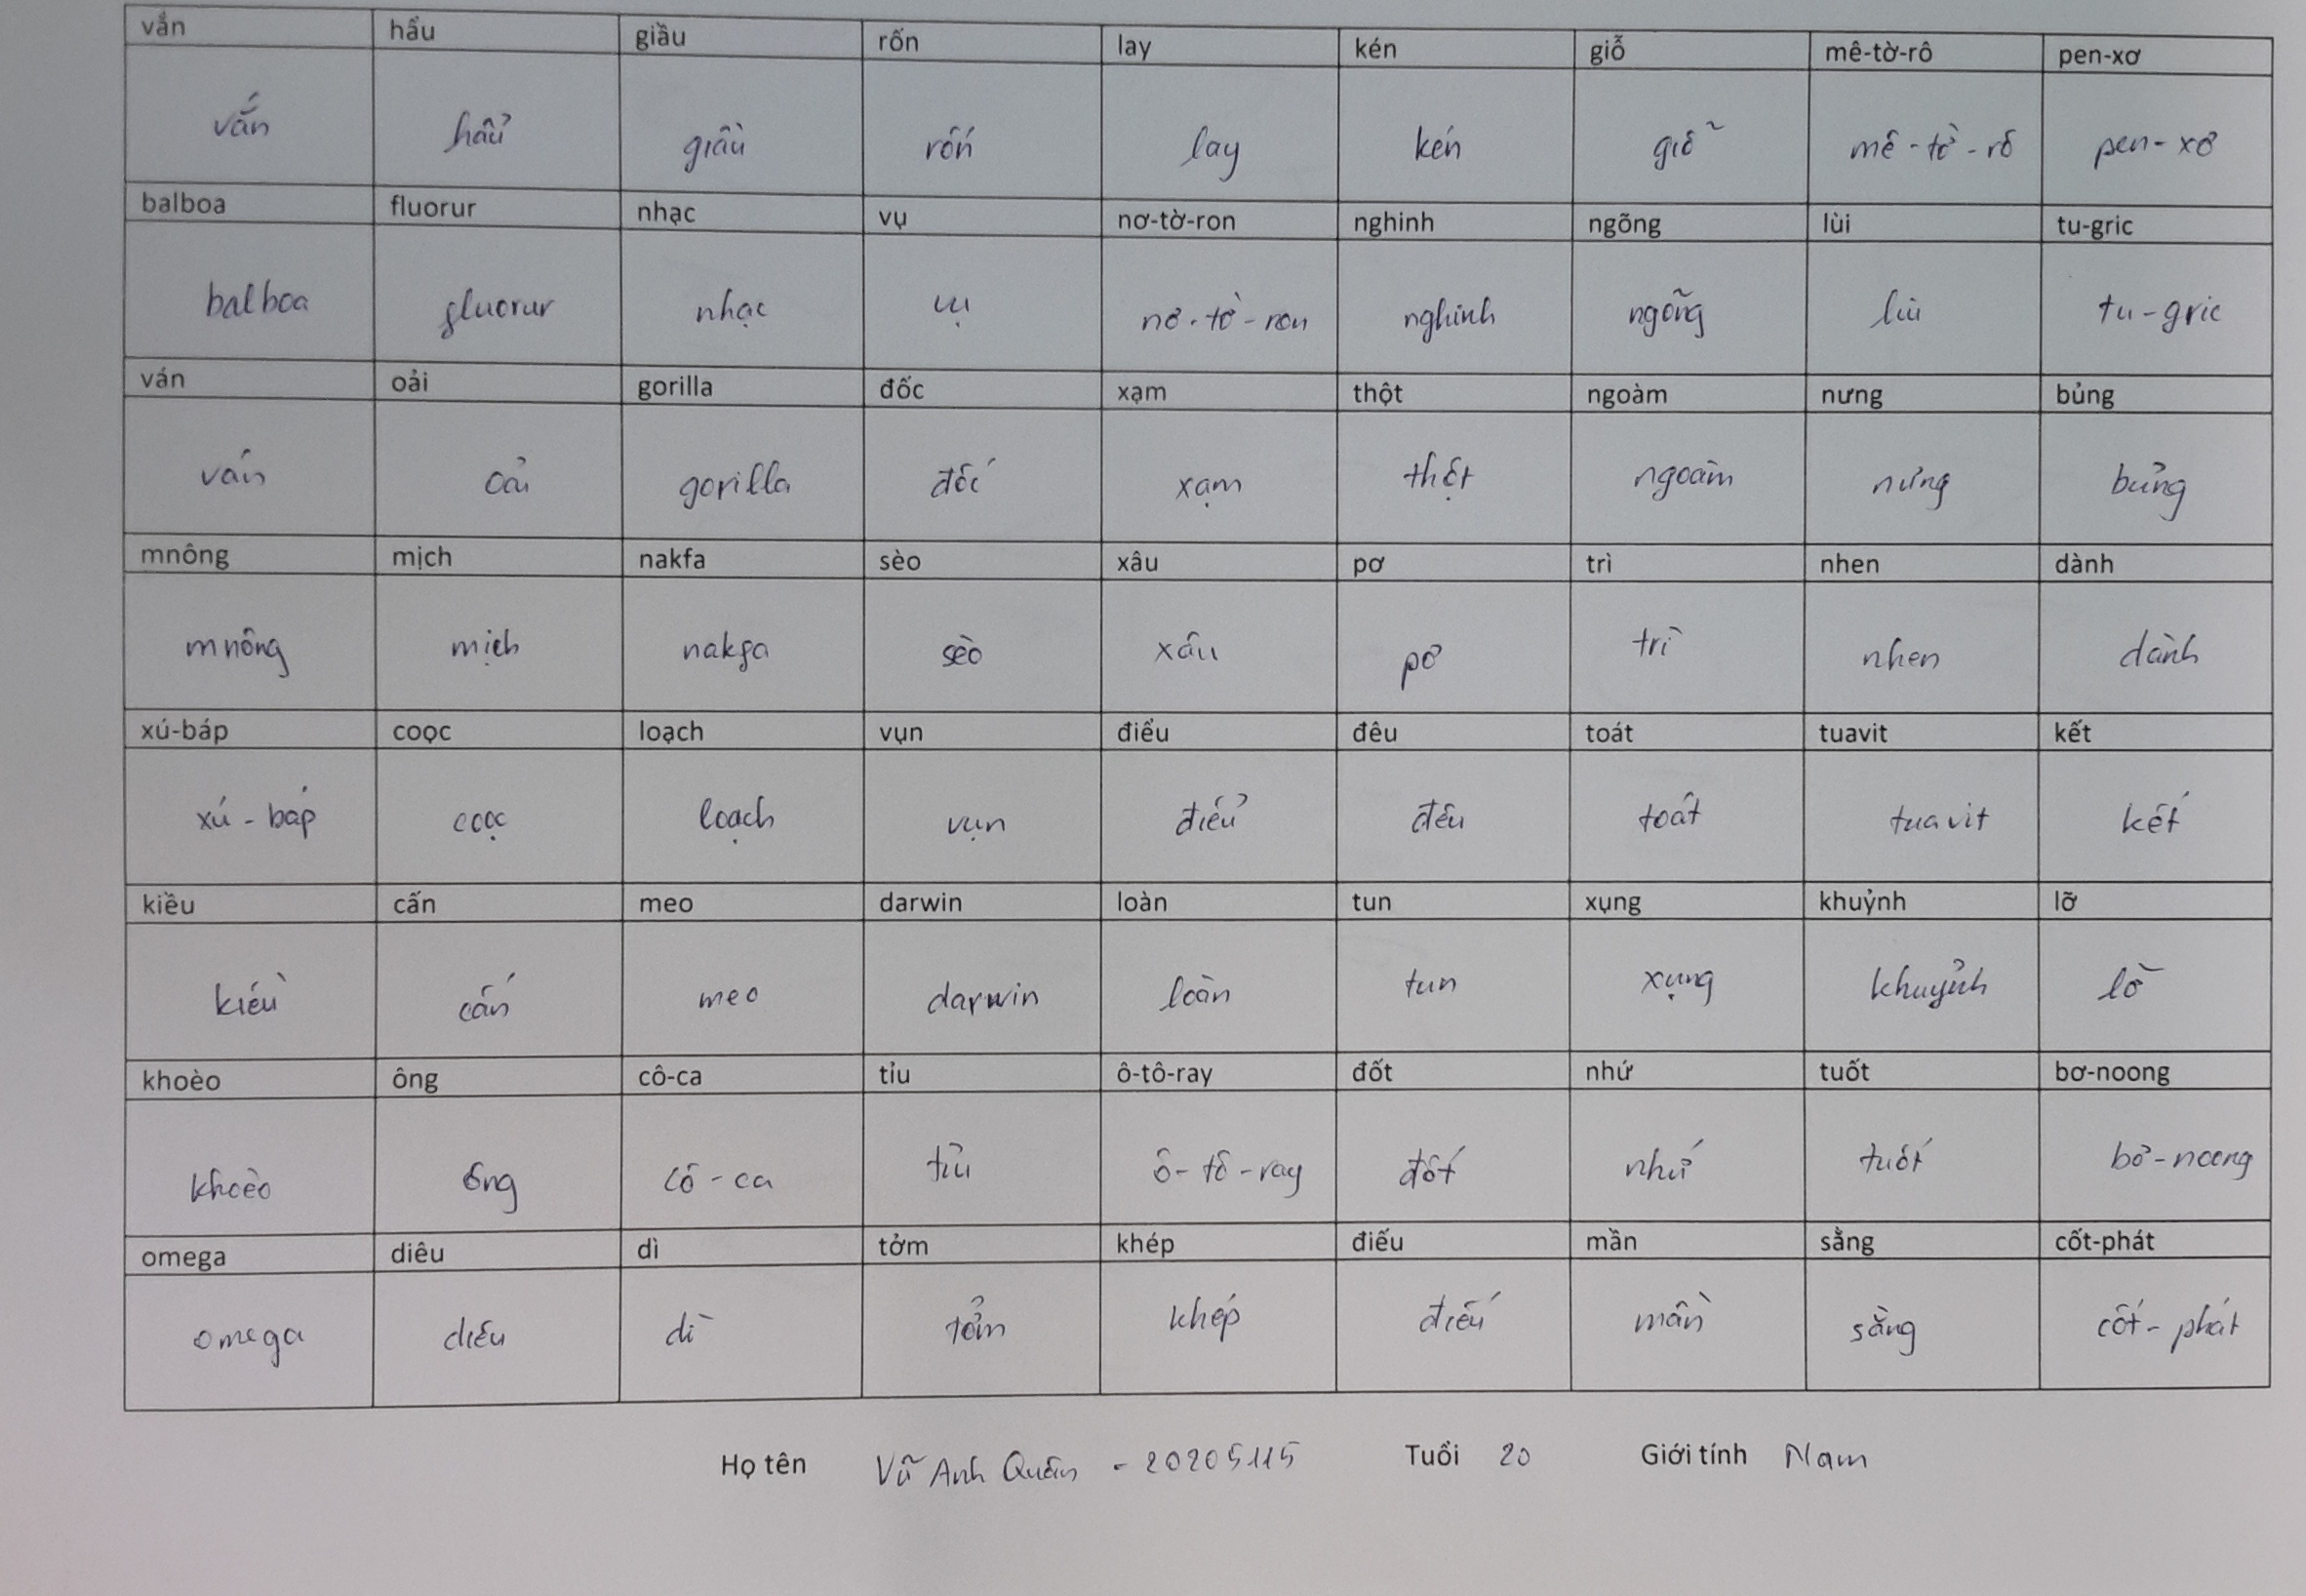 vắn hẩu giầu rốn lay kén giỗ mê-tờ-rô pen-xơ
vắn hẩu giầu rốn lay kén giỗ mê-tờ-rô pen-xơ
balboa fluorur nhạc vụ nơ-tờ-ron nghinh ngõng lùi tu-gric
balboa fluorur nhạc vụ nơ-tờ-ron nghinh ngõng lùi tu-gric
ván oải gorilla đốc xạm thột ngoàm nưng bủng
ván oải gorilla đốc xạm thột ngoàm nưng bủng
mnông mịch nakfa sèo xâu pơ trì nhen dành
mnông mịch nakfa sèo xâu pơ trì nhen dành
xú-báp coọc loạch vụn điểu đêu toát tuavit kết
xú-báp coọc loạch vụn điểu đêu toát tuavit kết
kiều cấn meo darwin loàn tun xụng khuỷnh lỡ
kiều cấn meo darwin loàn tun xụng khuỷnh lỡ
khoèo ông cô-ca tỉu ô-tô-ray đốt nhứ tuốt bơ-noong
khoèo ông cô-ca tỉu ô-tô-ray đốt nhứ tuốt bơ-noong
omega diêu dì tởm khép điếu mần sằng cốt-phát
omega diêu dì tởm khép điếu mần sằng cốt-phát
Họ tên Vũ Anh Quân - 20205115 Tuổi 20 Giới tính Nam